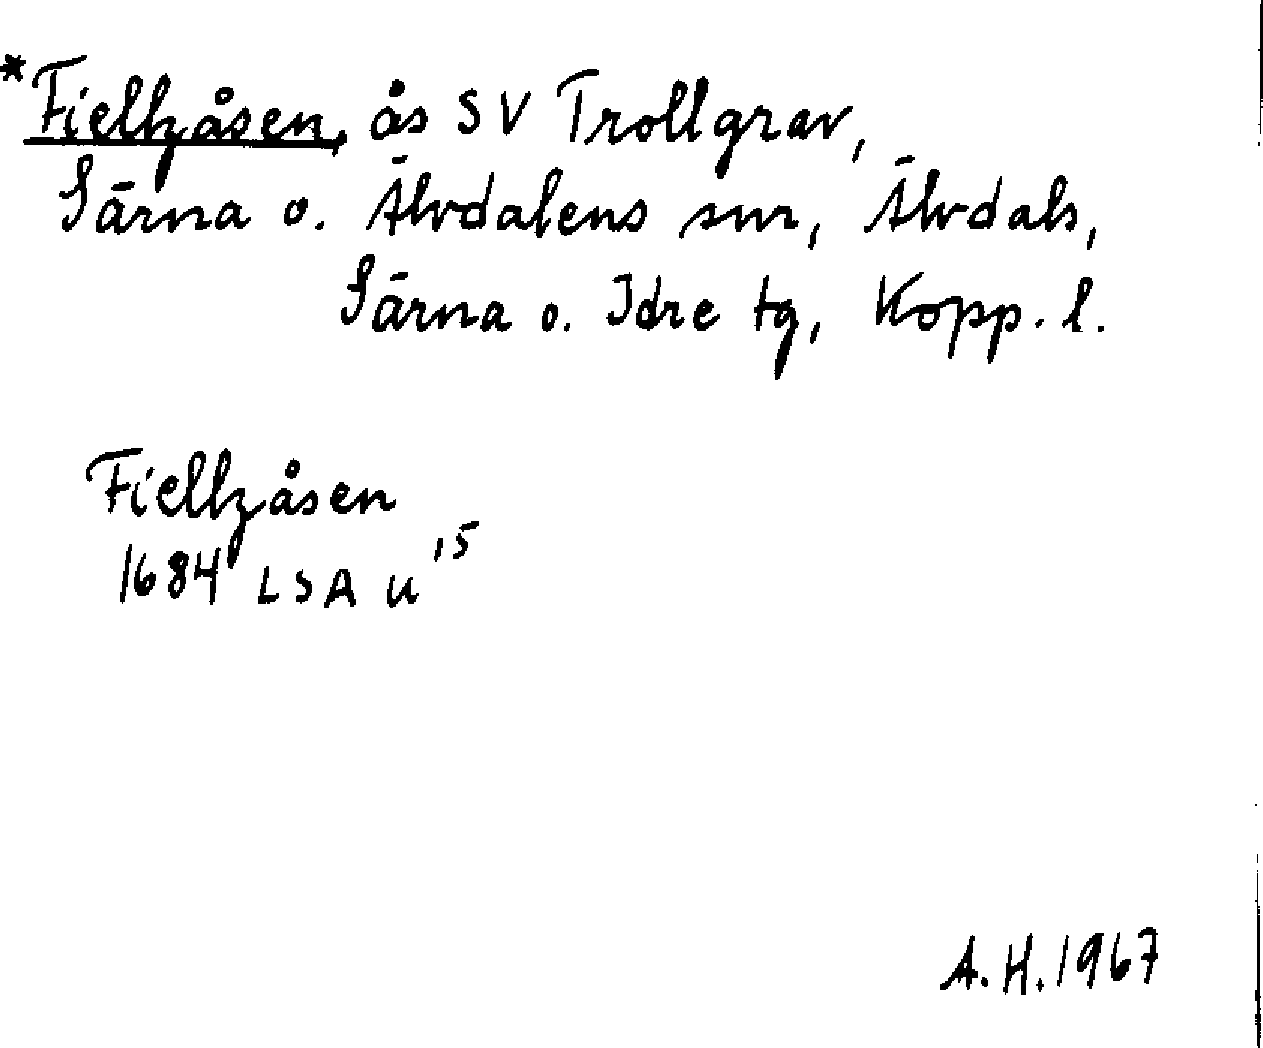 *Fiellzåsen, ås SV Trollgrav,
Särna o. Älvdalens snr, Älvdals,
Särna o. Idre tg, Kopp. l.
Fiellzåsen
1684 LSA U 15
A. H. 1967